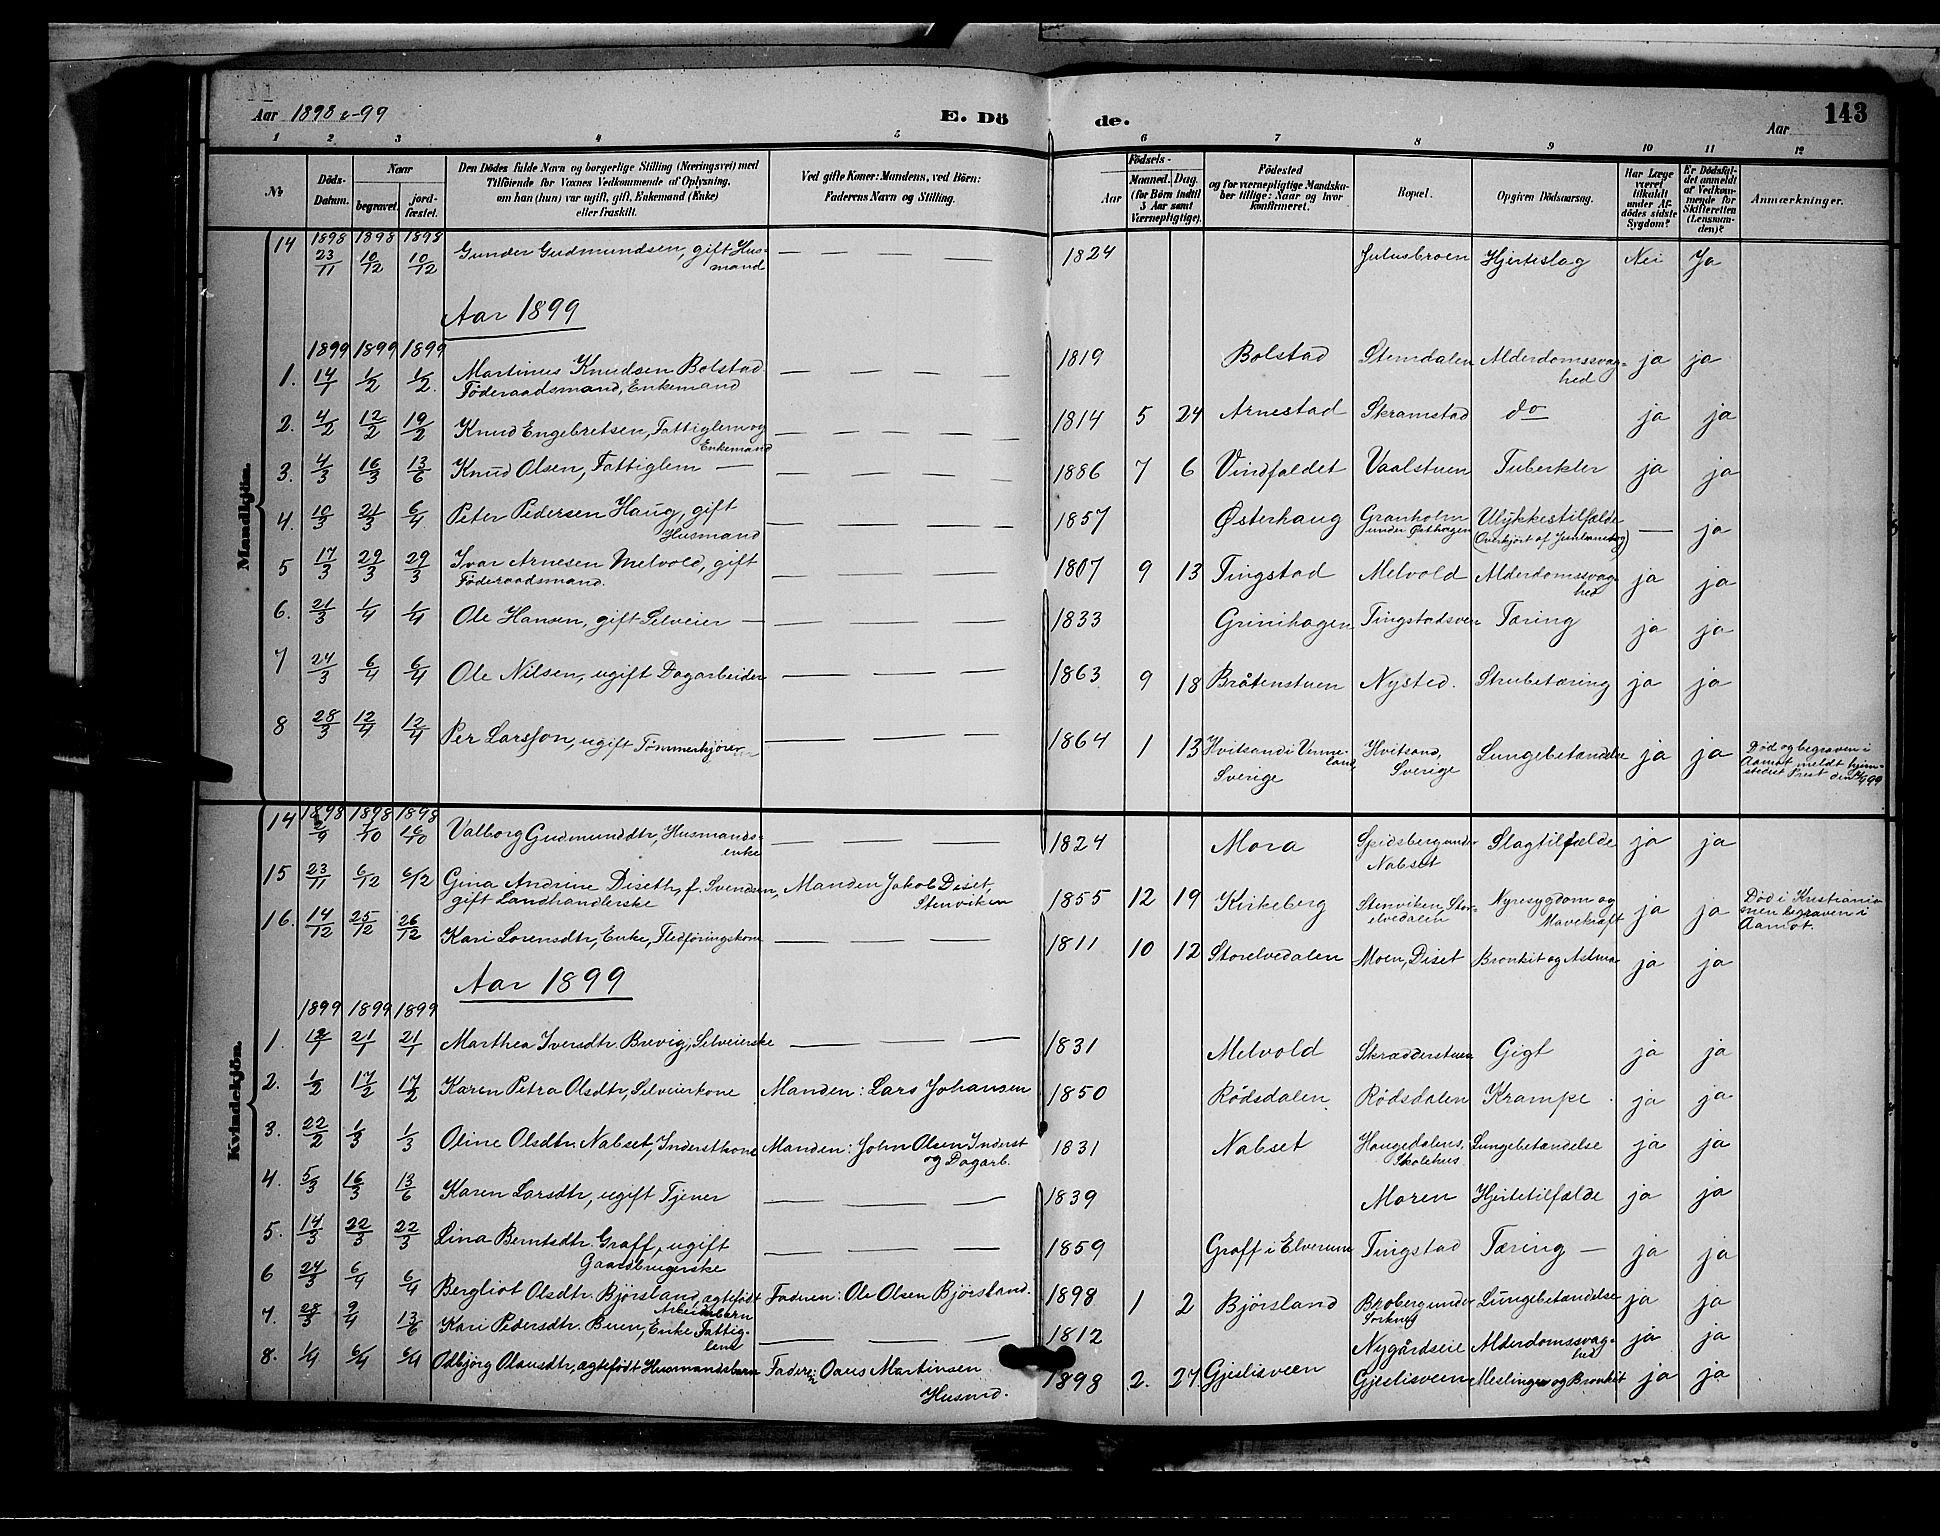 Aar 1898 e-99 E. Dö de. Aar 143
1 2 3 4 5 6 7 8 9 10 11 12
No
Döds-Datum.
Naar
begravet.
jord-fæstet.
Den Dödes fulde Navn og borgerlige Stilling (Næringsvei) med
Tilföiende for Voxnes Vedkommende af Oplysning,
om han (hun) var ugift, gift, Enkemand (Enke)
eller fraskilt.
Ved gifte Koner: Mandens, ved Börn:
Faderens Navn og Stilling.
Födsels-
Aar
Maaned. Dag.
(for Börn indtil
5 Aar samt
Værnepligtige).
Födested
og for værnepligtige Mandska-
ber tillige: Naar og hvor
konfirmeret.
Bopæl.
Opgiven Dödsaarsag.
Har Læge
været
tilkaldt
under Af-
dödes sidste
Sygdom?
Er Dödsfal-
det anmeldt
af Vedkom-
mende for
Skifteretten
(Lensman-
den)?
Anmærkninger.
Mandkjön.
1898 1898 1898
14 23/11 10/12 10/12 Gunder Gudmundsen, gift Hus-
mand — — — — 1824 Julusbroen Hjerteslag Nei Ja
Aar 1899
1899 1899 1899
1. 14/1 1/2 1/2. Martinus Knudsen Bolstad
Föderaadsmand, Enkemand — — — — 1819 Bolstad Stemdalen Alderdomssvag-
hed ja ja
2. 4/2 12/2 19/2 Knud Engebretsen, Fattiglem og
Enkemand — — — — 1814 5 24 Arnestad Skramstad do ja ja
3. 4/3 16/3 13/6 Knud Olsen, Fattiglem — — — — — 1886 7 6 Vindfaldet Vaalstuen Tuberkler ja ja
4. 10/3 21/3 6/4 Peter Pedersen Haug, gift
Husmand — — — — 1857 Østerhaug Granholm
under Østhagen Ulykkestilfælde
(Overkjørt af Jernbanetog) — ja
5 17/3 29/3 29/3 Ivar Arnesen Melvold, gift
Föderaadsmand. — — — — 1807 9 13 Tingstad Melvold Alderdomssvag-
hed ja ja
6. 21/3 1/4 1/4 Ole Hansen, gift Selveier — — — — — 1833 Grinihagen Tingstadsven Tæring ja ja
7 24/3 6/4 6/4 Ole Nilsen, ugift Dagarbeider — — — — 1863 9 18 Bråtenstuen Nysted. Strubetæring ja ja
8 28/3 12/4 12/4 Per Larsson, ugift Tømmerkjører — — — — 1864 1 13 Hvitsand i Verme-
land,
Sverige Hvitsand,
Sverige Lungebetændelse ja ja Død og begraven i
Aamot meldt hjem-
stedets Prest den
Kvindekjön.
1898 1898 1898
14 2/9 1/10 16/10 Valborg Gudmunddtr, Husmands-
enke — — — — 1824 Mora Spidsberg under
Nabset Slagtilfælde ja ja
15 23/11 6/12 6/12 Gina Andrine Diseth, f. Svendsen,
gift Landhandlerske Manden Jakob Diset,
Stenviken 1855 12 19 Kirkeberg Stenviken, Stor-
elvedalen Nyresygdom og
Mavekræft ja ja Død i Kristiania
men begraven i
Aamot.
16. 14/12 25/12 26/12 Kari Lorensdtr, Enke, Fledføringskone — — — — 1811 10 12 Storelvedalen Moen, Diset Bronkit og Astma ja ja
Aar 1899
1899 1899 1899
1. 12/1 21/1 21/1 Marthea Iversdtr. Brevig, Selveierske — — — — 1831 Melvold Skrædderstuen Gigt ja ja
2. 1/2 17/2 17/2 Karen Petra Olsdtr, Selveierkone Manden: Lars Johansen 1850 Rödsdalen Rödsdalen Krampe ja ja
3. 22/2 1/3 1/3 Oline Olsdtr. Nabset, Inderstkone Manden: John Olsen Inderst
og Dagarb. 1831 Nabset Haugedalens
Skolehus Lungebetændelse ja ja
4. 5/3 16/3 13/6 Karen Larsdtr, ugift Tjener — — — 1839 Moren Hjertetilfælde ja ja
5. 14/3 22/3 22/3 Lina Berntsdtr. Graff, ugift
Gaardbrugerske — — — — 1859 Graff i Elverum Tingstad Tæring — ja ja
6 24/3 6/4 6/4 Bergliot Olsdtr. Bjørsland, ægtefødt
Arbeidsbarn Faderen: Ole Olsen Bjørsland. 1898 1 2 Bjørsland Broberg under
Sorknes Lungebetændelse ja ja
7. 28/3 9/4 13/6 Kari Pedersdtr. Buen, Enke Fattig-
lem — — — — 1812 Nygårdseie Alderdomssvag-
hed ja ja
8. 1/4 6/4 6/4 Odbjörg Olausdtr, ægtefödt Husmandsbarn Faderen Oaus Martinsen
Husmd. 1898 2. 27 Gjeslisveen Gjeslisveen Meslinger og Bronkit ja ja